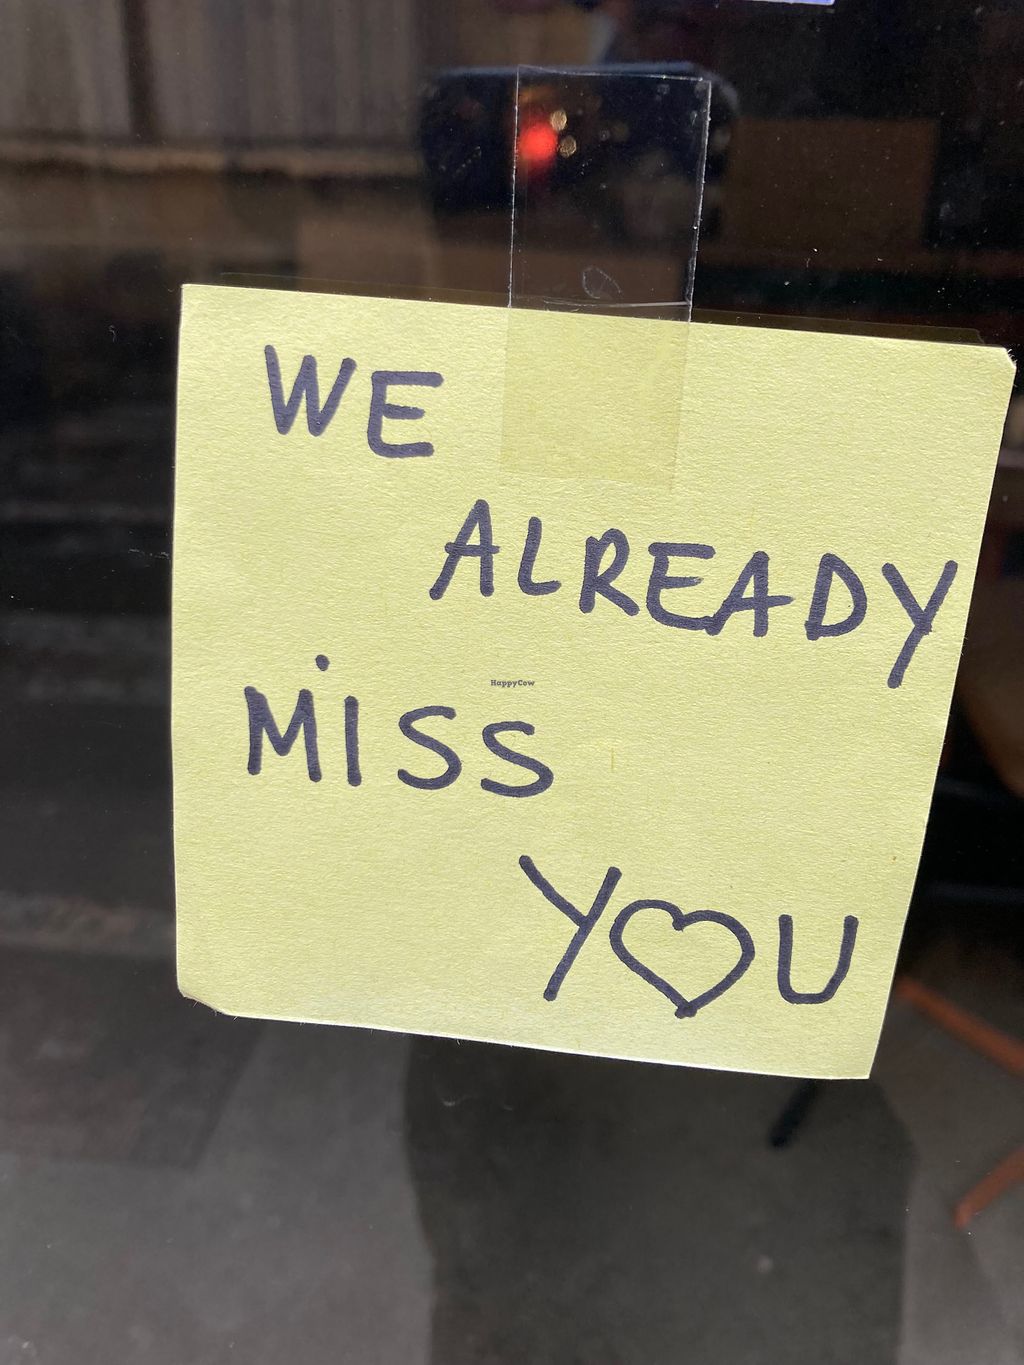 WE
ALREADY
MiSS
HappyCow
Y♡U